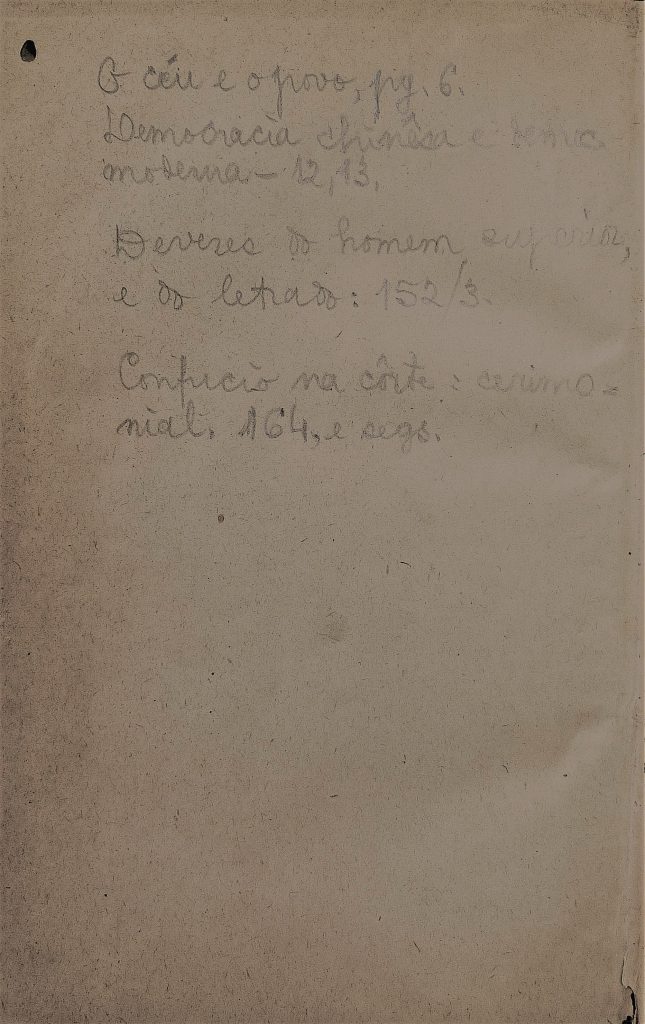 O céu e o povo, pg. 6.
Democracia chinêsa e democ.
moderna – 12, 13.
Deveres do homem superior,
e do letrado: 152/3.
Confucio na côrte: cerimo=
nial. 164, e segs.